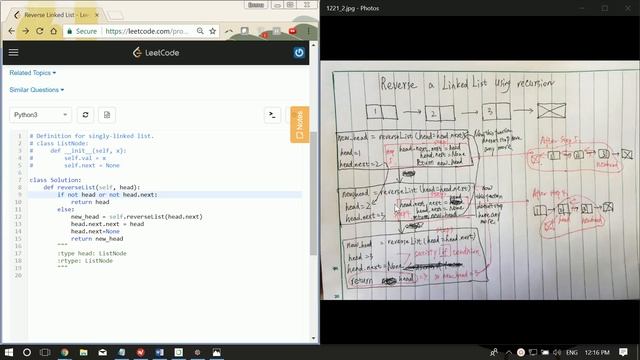 Reverse Linked List - LeetCode
Secure
https://leetcode.com/pro...
LeetCode
Related Topics
Similar Questions
Python3
Notes
1 # Definition for singly-linked list.
2 # class ListNode:
3 #     def __init__(self, x):
4 #         self.val = x
5 #         self.next = None
6
7 class Solution:
8     def reverseList(self, head):
9         if not head or not head.next:
10             return head
11         else:
12             new_head = self.reverseList(head.next)
13             head.next.next = head
14             head.next=None
15             return new_head
16         """
17         :type head: ListNode
18         :rtype: ListNode
19         """
20
1221_2.jpg - Photos
Reverse a Linked List using recursion
1 2 3
new_head = reverseList(head=head.next)
head=1
head.next=2
head.next.next=head
head.next=None
Return new_head
After Step
new_head = reverseList(head=head.next)
head=2
head.next=3
head.next.next=head
head.next=None
Return new_head
now
After Step
new_head = reverseList(head=head.next)
head=3
head.next=None
satisfy if condition
return head
so new_head=3
ENG
12:16 PM